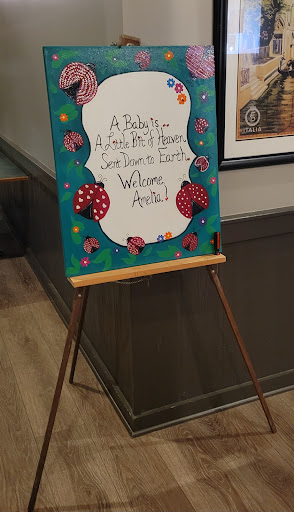 A Baby is...
A Little Bit of Heaven
Sent Down to Earth.
Welcome
Amelia!
ITALIA